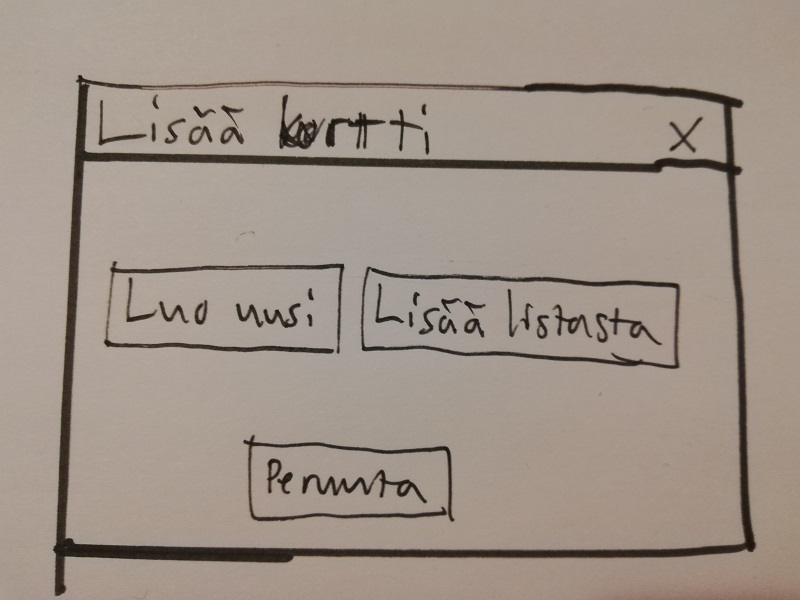 Lisää kortti X
Luo uusi
Lisää listasta
Peruuta